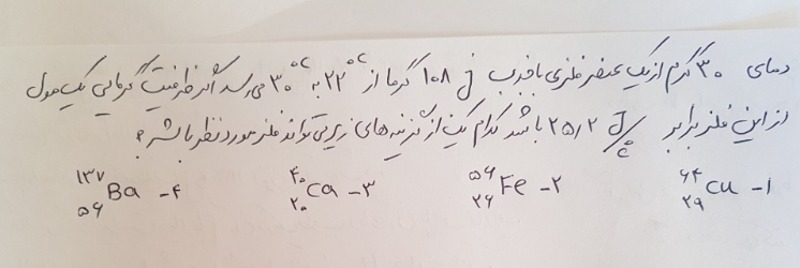 دمای ۳۰ گرم از یک عنصر فلزی با جذب ۱۰۸ J گرما از ۲۲°C به ۳۰°C می رسد اگر ظرفیت گرمایی یک مول
از این فلز برابر ۲۵/۲ J/°C باشد کدام یک از گزینه های زیر می تواند فلز مورد نظر باشد؟
۱- ⁶⁴₂₉Cu ۲- ⁵⁶₂₆Fe ۳- ⁴⁰₂₀Ca ۴- ¹³⁷₅₆Ba